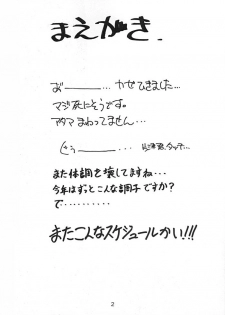 まえがき.
お――――… かぜひきました…
マジ死にそうです。
アタマまわってません…
また体調を壊してますね…
今年はずっとこんな調子ですか?
で・・・・・・・・・・
またこんなスケジュールかい!!!
2